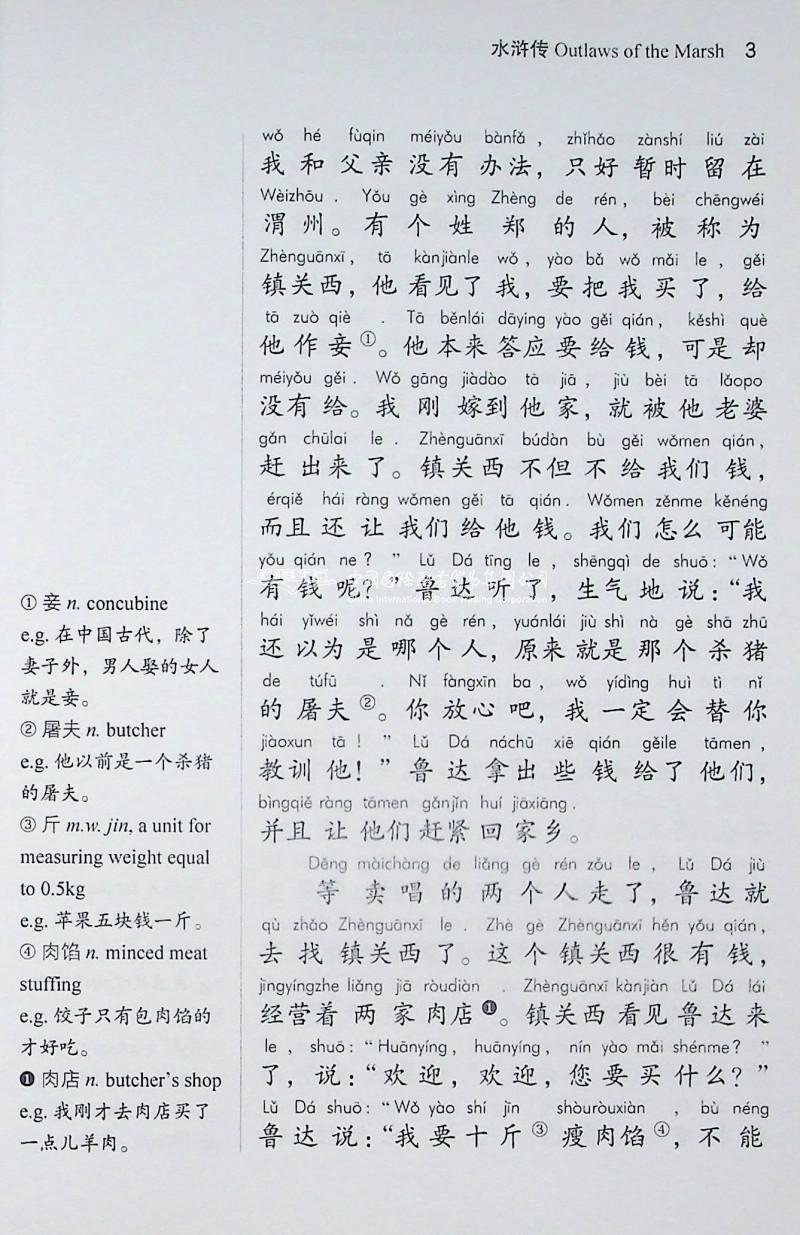 水浒传 Outlaws of the Marsh 3
wǒ hé fùqin méiyǒu bànfǎ, zhǐhǎo zànshí liú zài
我和父亲没有办法，只好暂时留在
Wèizhōu. Yǒu gè xìng Zhèng de rén, bèi chēngwéi
渭州。有个姓郑的人，被称为
Zhènguānxī, tā kànjiànle wǒ, yào bǎ wǒ mǎi le, gěi
镇关西，他看见了我，要把我买了，给
tā zuò qiè. Tā běnlái dāying yào gěi qián, kěshì què
他作妾①。他本来答应要给钱，可是却
méiyǒu gěi. Wǒ gāng jiàdào tā jiā, jiù bèi tā lǎopo
没有给。我刚嫁到他家，就被他老婆
gǎn chūlai le. Zhènguānxī búdàn bù gěi wǒmen qián,
赶出来了。镇关西不但不给我们钱，
érqiě hái ràng wǒmen gěi tā qián. Wǒmen zěnme kěnéng
而且还让我们给他钱。我们怎么可能
yǒu qián ne?" Lǔ Dá tīng le, shēngqì de shuō: "Wǒ
有钱呢？”鲁达听了，生气地说：“我
hái yǐwéi shì nǎ gè rén, yuánlái jiù shì nà gè shā zhū
还以为是哪个人，原来就是那个杀猪
de túfū. Nǐ fàngxīn ba, wǒ yídìng huì tì nǐ
的屠夫②。你放心吧，我一定会替你
jiàoxun tā!" Lǔ Dá náchū xiē qián gěile tāmen,
教训他！”鲁达拿出些钱给了他们，
bìngqiě ràng tāmen gǎnjǐn huí jiāxiāng.
并且让他们赶紧回家乡。
Děng màichàng de liǎng gè rén zǒu le, Lǔ Dá jiù
等卖唱的两个人走了，鲁达就
qù zhǎo Zhènguānxī le. Zhè gè Zhènguānxī hěn yǒu qián,
去找镇关西了。这个镇关西很有钱，
jīngyíngzhe liǎng jiā ròudiàn. Zhènguānxī kànjiàn Lǔ Dá lái
经营着两家肉店❶。镇关西看见鲁达来
le, shuō: "Huānyíng, huānyíng, nín yào mǎi shénme?"
了，说：“欢迎，欢迎，您要买什么？”
Lǔ Dá shuō: "Wǒ yào shí jīn shòuròuxiàn, bù néng
鲁达说：“我要十斤③瘦肉馅④，不能
① 妾 n. concubine
e.g. 在中国古代，除了
妻子外，男人娶的女人
就是妾。
② 屠夫 n. butcher
e.g. 他以前是一个杀猪
的屠夫。
③ 斤 m.w. jin, a unit for
measuring weight equal
to 0.5kg
e.g. 苹果五块钱一斤。
④ 肉馅 n. minced meat
stuffing
e.g. 饺子只有包肉馅的
才好吃。
❶ 肉店 n. butcher's shop
e.g. 我刚才去肉店买了
一点儿羊肉。